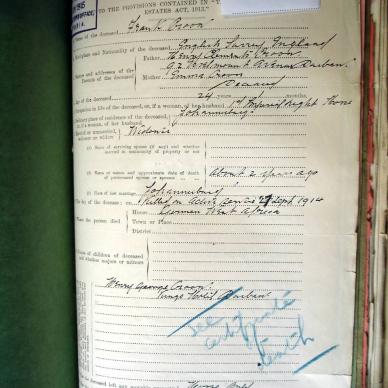 TO THE PROVISIONS CONTAINED IN "T
ESTATES ACT, 1913."
Name of the deceased Frank Croon
Birthplace and Nationality of the deceased English Surrey England
Names and addresses of the Parents of the deceased
Father Henry Clement Croon
Avenue Durban
Mother Emma Croon
Deceased
Age of the deceased 24 years months
Occupation in life of the deceased, or, if a woman, of her husband 1st Imperial Light Horse
Ordinary place of residence of the deceased, or, if a woman, of her husband Johannesburg
Married or unmarried, widower or widow Widower
(a) Name of surviving spouse (if any) and whether married in community of property or not
(b) Name or names and approximate date of death of predeceased spouse or spouses about 2 years ago
(c) Place of last marriage Johannesburg
The day of the decease: on Killed on Active Service 27 Sept 1914
Where the person died
House German West Africa
Town or Place
District
Names of children of deceased and whether majors or minors
Henry George Croon
Durban
See
Certificate
of
Death
the deceased left any